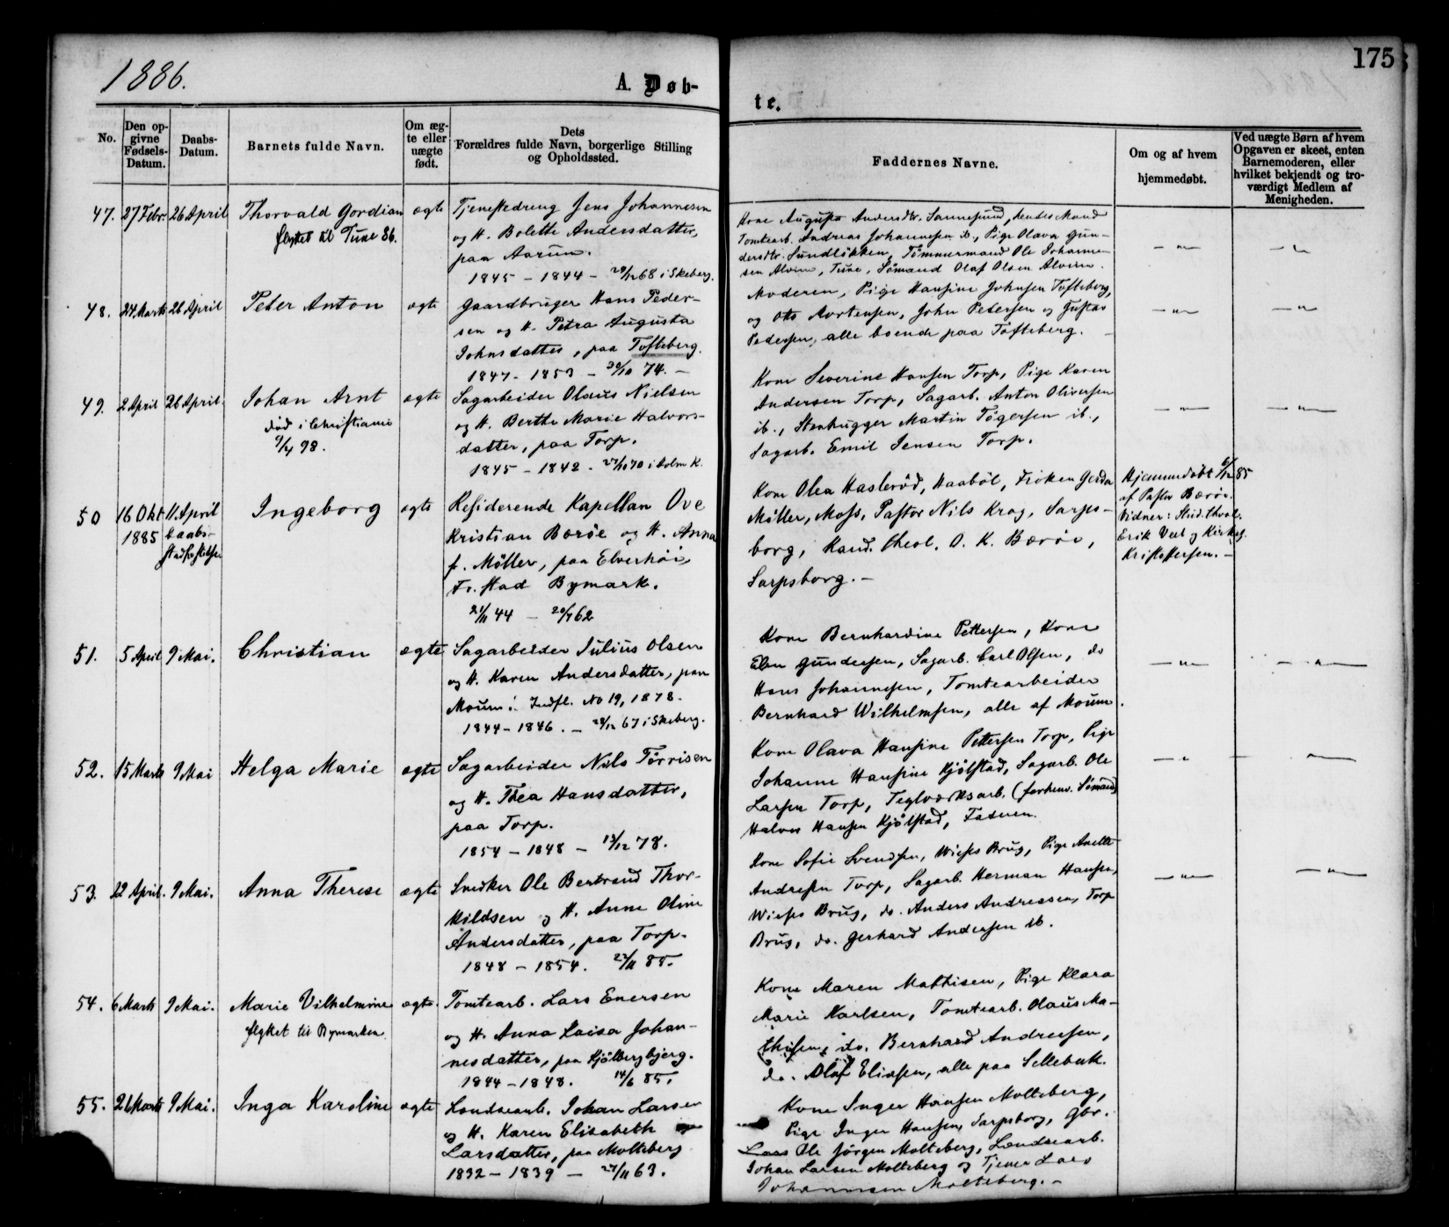 1886.
A. Døb-
te.
175
No.
Den op-
givne
Fødsels-
Datum.
Daabs-
Datum.
Barnets fulde Navn.
Om æg-
te eller
uægte
født.
Dets
Forældres fulde Navn, borgerlige Stilling
og Opholdssted.
Faddernes Navne.
Om og af hvem
hjemmedøbt.
Ved uægte Børn af hvem
Opgaven er skeet, enten
Barnemoderen, eller
hvilket bekjendt og tro-
værdigt Medlem af
Menigheden.
47. 27 Febr. 26 April Thorvald Gordian ægte Tjenestedreng Jens Johannesen
flyttet til Tune 86.
og H. Bolette Andersdatter,
paa Aarum.
1845 - 1844 - 29/12 68 i Skeberg.
Kone Augusta Andersdtr. Sannesund, hendes Mand
Tomtearb. Andreas Johannesen ib., Pige Olava Gun-
dersdtr. Sundløkken, Tømmermand Ole Johanne-
sen Alvim, Tune, Sømand Olaf Olsen Alvim.
48. 24 Marts 26 April Peter Anton ægte Gaardbruger Hans Peder-
sen og H. Petra Augusta
Johnsdatter, paa Tofteberg.
1847 - 1853 - 30/10 74. -
Moderen, Pige Hansine Johnsen Tofteberg,
og Otto Mortensen, John Petersen og Gustav
Pedersen, alle boende paa Tofteberg. -
49. 2 April 26 April. Johan Arnt ægte Sagarbeider Olaus Nielsen
død i Christiania
9/4 98.
og H. Berthe Marie Halvors-
datter, paa Torp.
1845 - 1842 - 27/10 70 i Holm K.
Kone Severine Hansen Torp, Pige Karen
Andersen Torp, Sagarb. Anton Oliversen
ib., Stenhugger Martin Tøgersen ib.,
Sagarb. Emil Jensen Torp.
50 16 Okt 11 April Ingeborg ægte Residerende Kapellan Ove
1885 Daabs-
stadfæstelse
Kristian Børøe og H. Anna
f. Møller, paa Elverhøi,
Fr.stad Bymark.
21/11 44 - 20/7 62
Kone Olea Haslerød, Haabøl, Frøken Gerda
Møller, Moss, Pastor Nils Krag, Sarps-
borg, Kand. theol. O. K. Børøe,
Sarpsborg. -
Hjemmedøbt 6/12 85
af Pastor Børøe.
Vidner: Stud. theol.
Erik Veel og Kirkesg.
Kristoffersen. -
51. 5 April 9 Mai. Christian ægte Sagarbeider Julius Olsen
og H. Karen Andersdatter, paa
Moum: Indfl. No 19, 1878.
1844 - 1846. - 29/12 67 i Skeberg.
Kone Bernhardine Pettersen, Kone
Elen Gundersen, Sagarb. Carl Olsen, do
Hans Johannesen, Tomtearbeider
Bernhard Wilhelmsen, alle af Moum.
52. 15 Marts 9 Mai Helga Marie ægte Sagarbeider Nils Torrisen
og H. Thea Hansdatter,
paa Torp.
1854 - 1848 - 13/12 78.
Kone Olava Hansine Pettersen Torp, Pige
Johanne Hansine Kjølstad, Sagarb. Ole
Larsen Torp, Teglværksarb. (forhenv. Sømand)
Halvor Hansen Kjølstad, Faderen.
53. 12 April. 9 Mai. Anna Therese ægte Snedker Ole Bertrand Thor-
kildsen og H. Anne Oline
Andersdatter, paa Torp.
1848 - 1854. 22/11 85.
Kone Sofie Svendsen, Wieses Brug, Pige Anette
Andresen Torp, Sagarb. Herman Hansen,
Wieses Brug, do. Anders Andreassen, Torp
Brug, do. Gerhard Andersen ib.
54. 6 Marts 9 Mai. Marie Vilhelmine ægte. Tomtearb. Lars Enersen
flyttet til Bymarken
og H. Anna Laisa Johan-
nesdatter, paa Kjølbergbjerg.
1844 - 1848. 14/6 85.
Kone Maren Mathisen, Pige Klara
Marie Karlsen, Tomtearb. Olaus Ma-
thisen, do. Bernhard Andreesen,
do. Oluf Eliassen, alle paa Sellebak.
55. 26 Marts 9 Mai. Inga Karoline ægte Landsearb. Johan Larsen
og H. Karen Elisabeth
Larsdatter, paa Molteberg
1832 - 1839 - 27/11 63.
Kone Inger Hansen Molteberg,
Pige Inger Hansen, Sarpsborg, Gbr.
Ole Jørgen Molteberg, Landsearb.
Johan Larsen Molteberg og Tjener Lars
Johannesen Molteberg. -